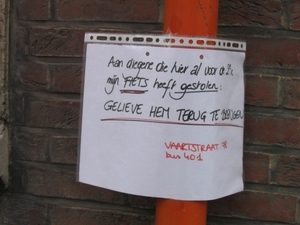 Aan diegene die hier al voor de 2e
mijn FIETS heeft gestolen:
GELIEVE HEM TERUG TE BRENGEN
VAARTSTRAAT
bus 401